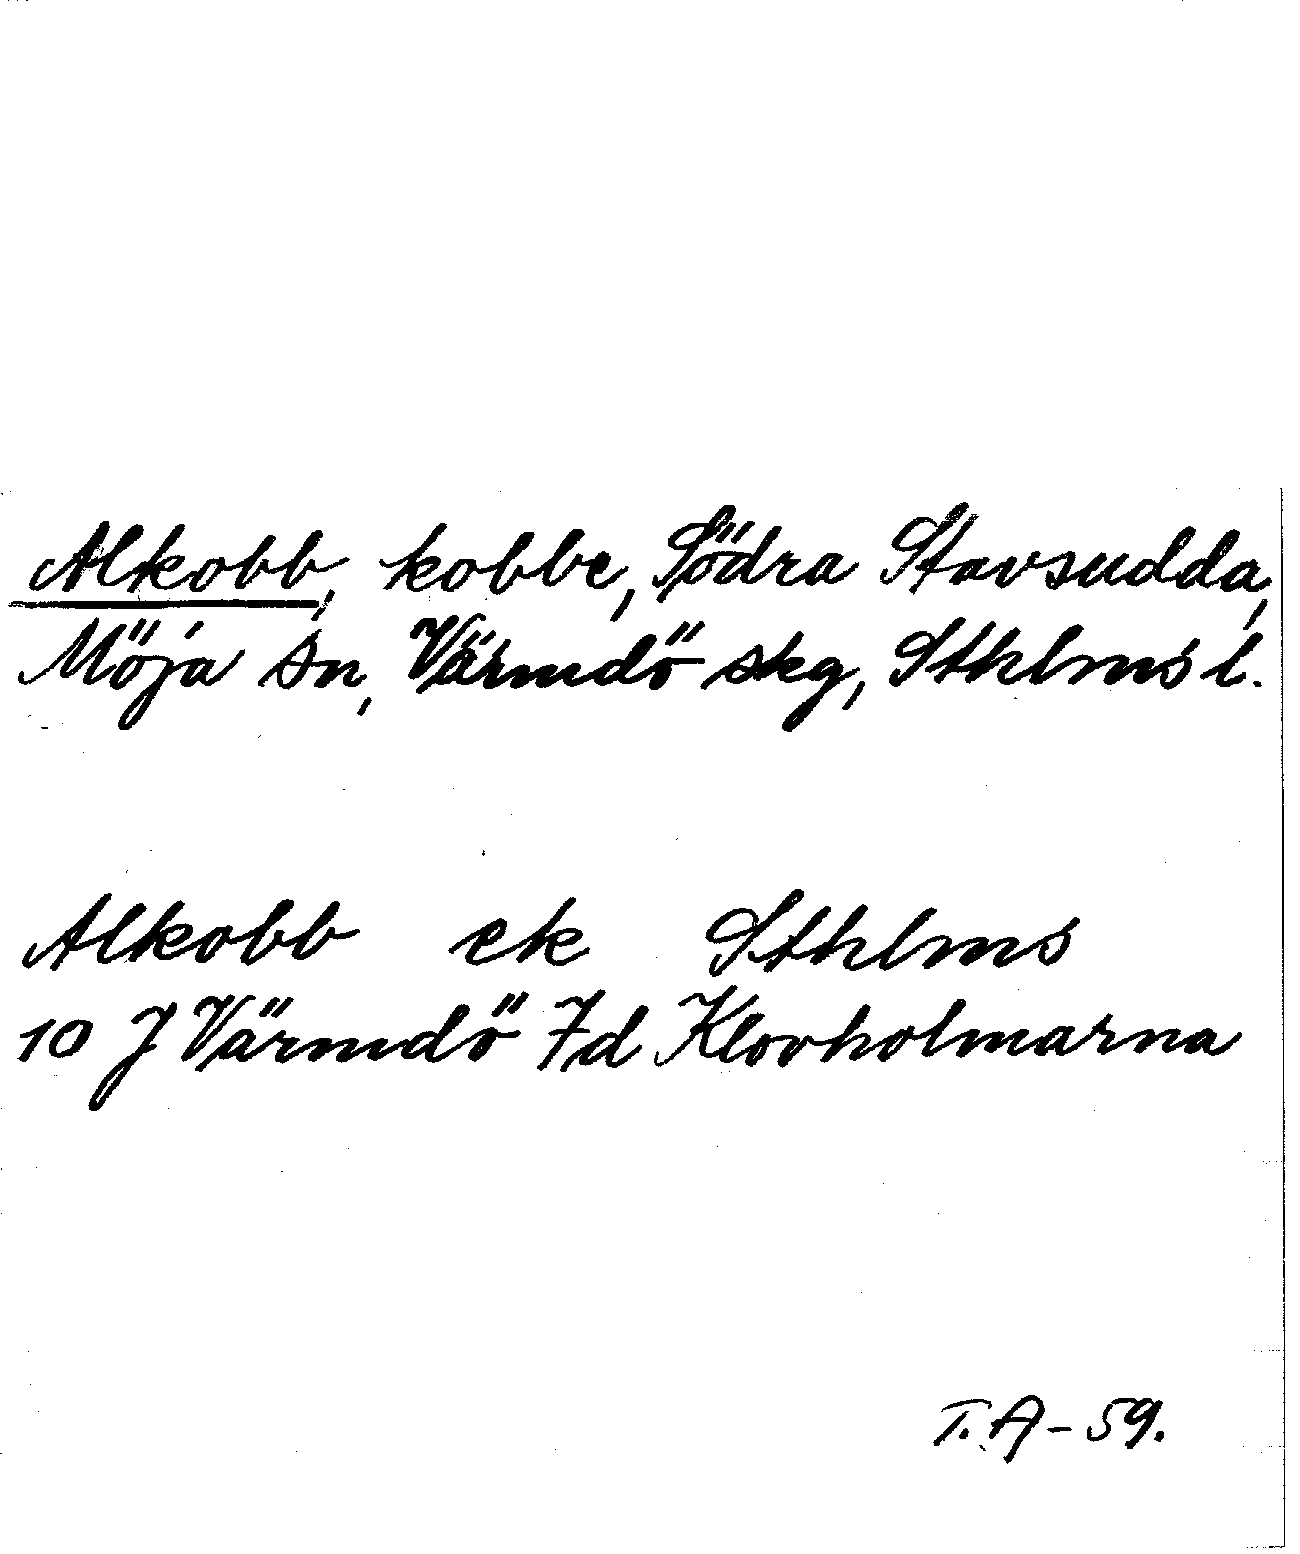 Alkobb, kobbe, Södra Stavsudda,
Möja sn, Värmdö skg, Sthlms l.
Alkobb ek Sthlms
10 J Värmdö 7d Klovholmarna
T.A-59.